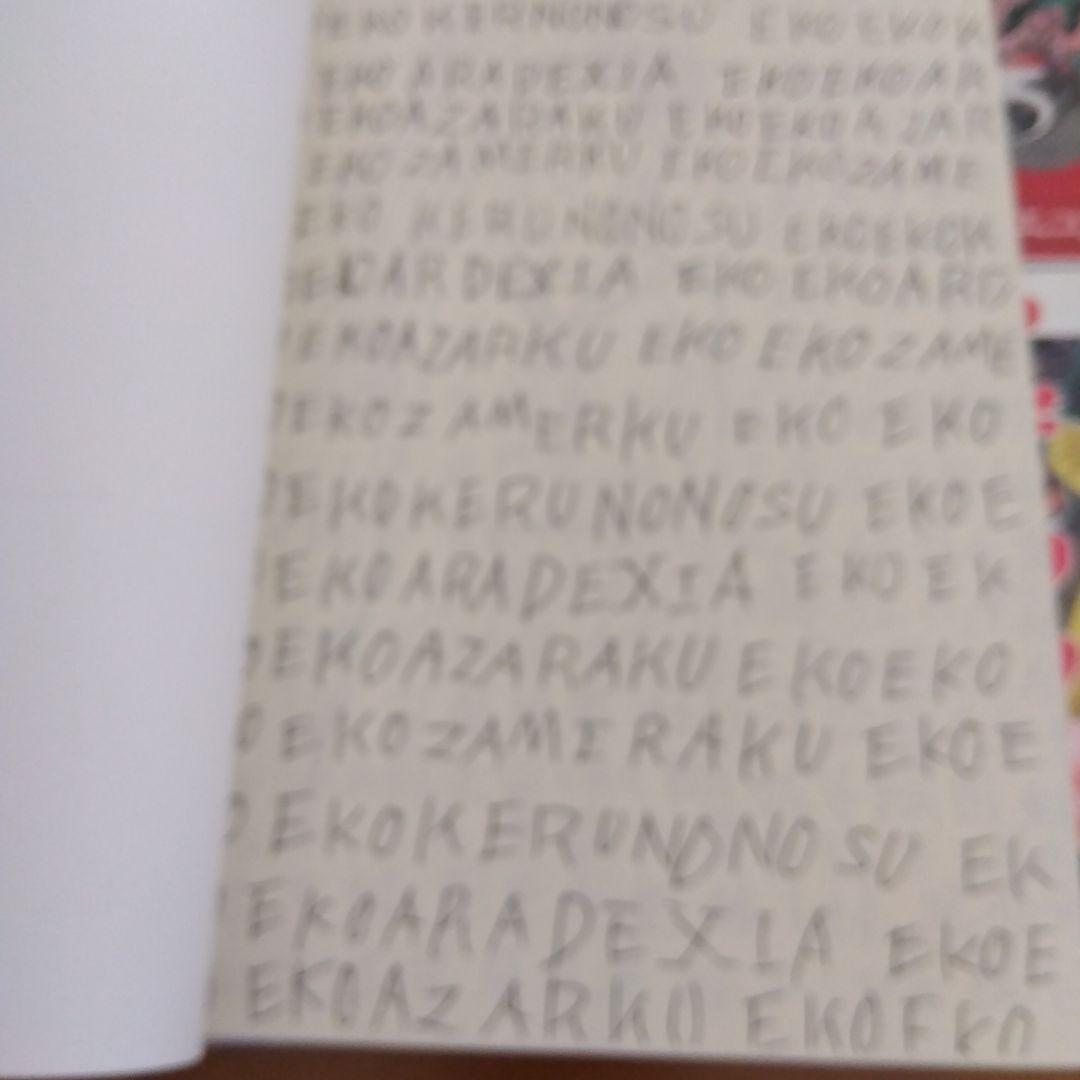 EKOKERNONOSU EKOEKOK
EKO ARADEXIA EKOEKOAR
EKOAZARAKU EKOEKOAZAR
EKOZAMERKU EKOEKOZAME
EKO KERUNONOSU EKOEKOK
EKOARDEXIA EKO EKOARD
EKOAZARKU EKO EKOZAME
EKOZAMERKU EKO EKO
EKOKERUNONOSU EKOE
EKOARADEXIA EKO EK
EKOAZARAKU EKOEKO
O EKOZAMIRAKU EKOE
O EKOKERUNONOSU EK
EKOARADEXIA EKOE
EKOAZARKU EKOEKO
5